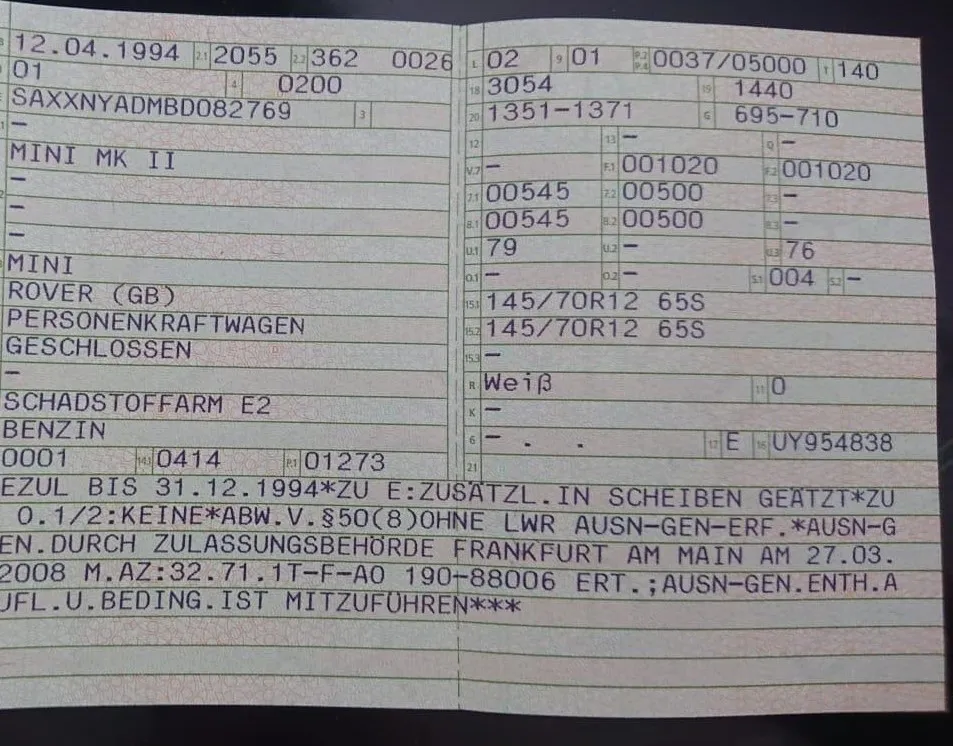 B 12.04.1994 2.1 2055 2.2 362 0026
01 4 0200
SAXXNYADMBD082769 3
–
MINI MK II
–
–
–
MINI
ROVER (GB)
PERSONENKRAFTWAGEN
GESCHLOSSEN
–
SCHADSTOFFARM E2
BENZIN
0001 14.1 0414 P.1 01273
L 02 9 01 P.2 P.4 0037/05000 T 140
18 3054 19 1440
20 1351–1371 G 695–710
12 13 – Q –
V.7 – F.1 001020 F.2 001020
7.1 00545 7.2 00500 7.3 –
8.1 00545 8.2 00500 8.3 –
U.1 79 U.2 – U.3 76
O.1 – O.2 – S.1 004 S.2 –
15.1 145/70R12 65S
15.2 145/70R12 65S
15.3 –
R Weiß 11 0
K –
6 – . . 17 E 16 UY954838
21
EZUL BIS 31.12.1994*ZU E:ZUSÄTZL.IN SCHEIBEN GEÄTZT*ZU
O.1/2:KEINE*ABW.V.§50(8)OHNE LWR AUSN-GEN-ERF.*AUSN-G
EN.DURCH ZULASSUNGSBEHÖRDE FRANKFURT AM MAIN AM 27.03.
2008 M.AZ:32.71.1T-F-A0 190-88006 ERT.;AUSN-GEN.ENTH.A
UFL.U.BEDING.IST MITZUFÜHREN***